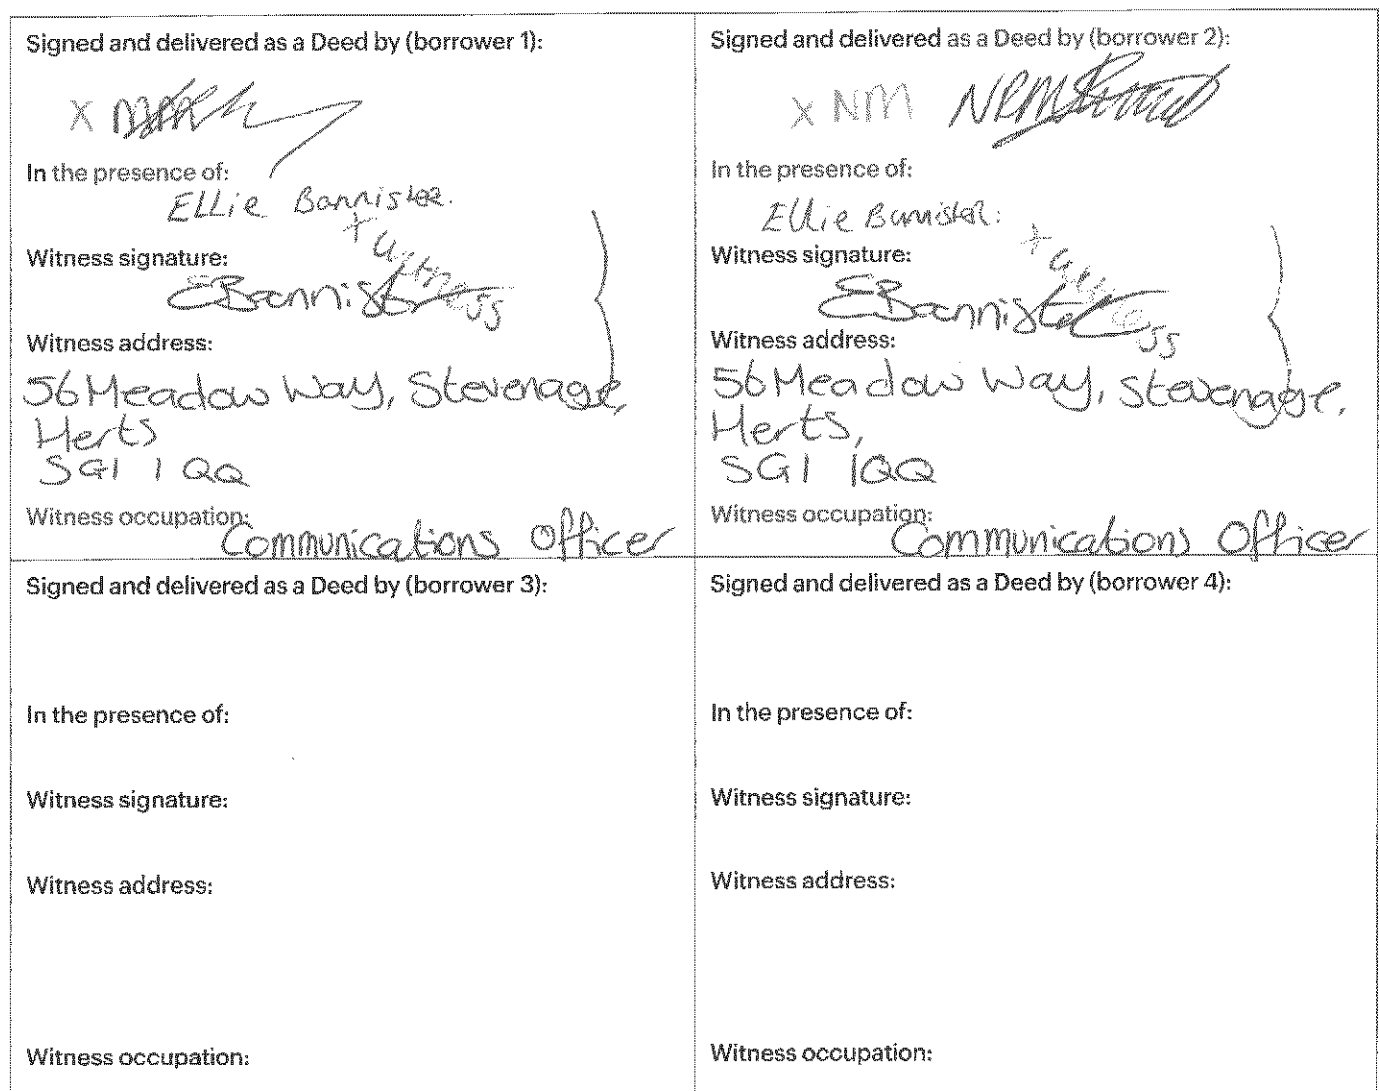 Signed and delivered as a Deed by (borrower 1):
X
In the presence of:
Ellie Bannister.
x witness
Witness signature:
EBannister
Witness address:
56 Meadow Way, Stevenage,
Herts
SG1 1QQ
Witness occupation:
Communications Officer
Signed and delivered as a Deed by (borrower 2):
x NM
In the presence of:
Ellie Bannister.
x witness
Witness signature:
EBannister
Witness address:
56 Meadow Way, Stevenage,
Herts,
SG1 1QQ
Witness occupation:
Communications Officer
Signed and delivered as a Deed by (borrower 3):
In the presence of:
Witness signature:
Witness address:
Witness occupation:
Signed and delivered as a Deed by (borrower 4):
In the presence of:
Witness signature:
Witness address:
Witness occupation: